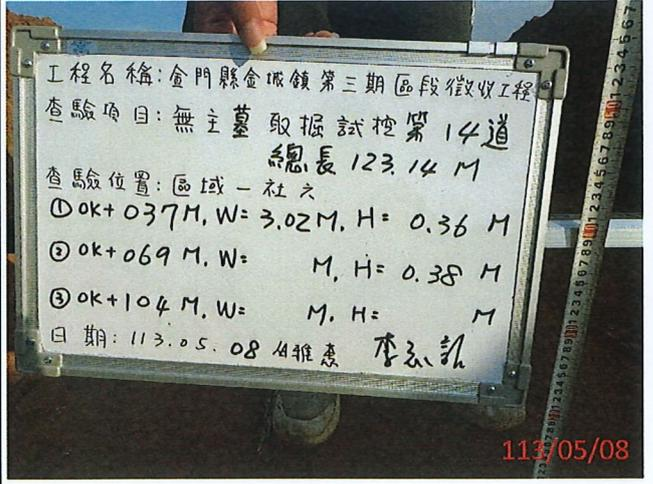 工程名稱:金門縣金城鎮第三期區段徵收工程
查驗項目:無主墓 取掘試挖第14道
總長 123.14 M
查驗位置:區域一社六
① 0K+037M, W= 3.02M, H= 0.36 M
② 0K+069 M, W= M, H= 0.38 M
③ 0K+104 M, W= M, H= M
日期:113.05.08 雅惠 李
113/05/08